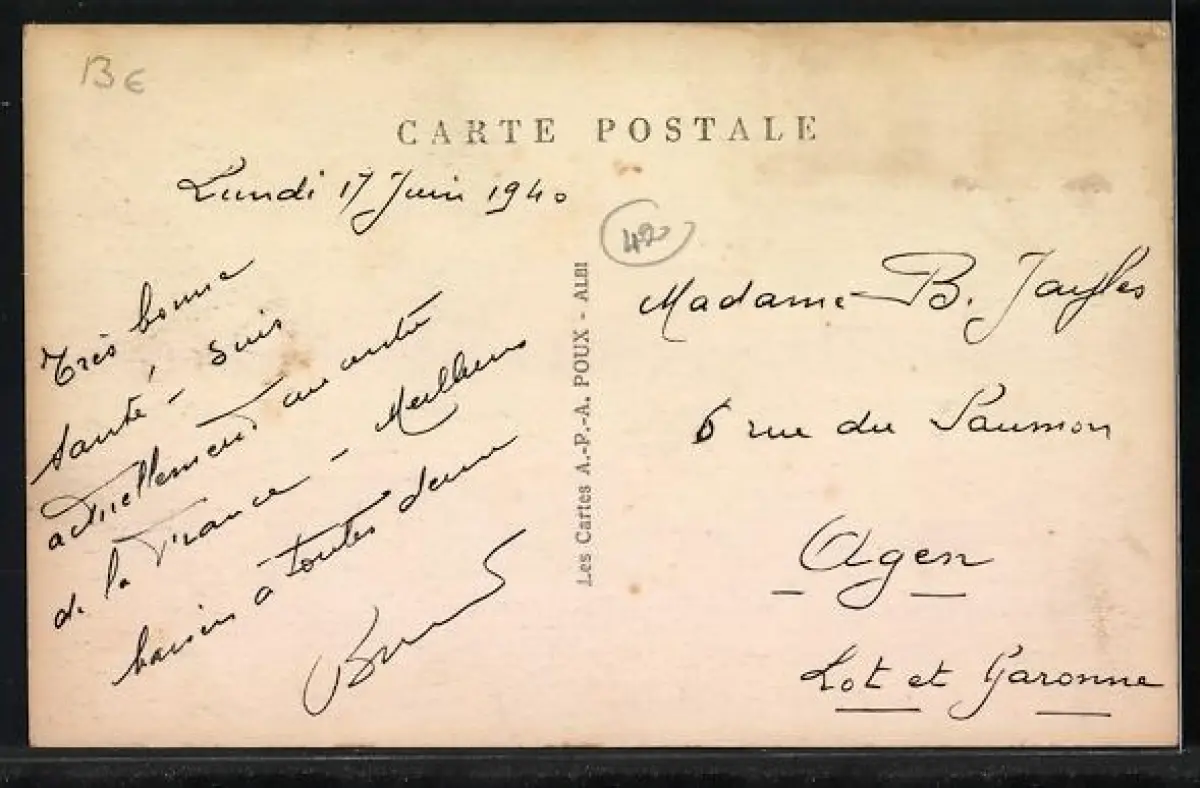 13 €
CARTE POSTALE
Lundi 17 Juin 1940
Très bonne
santé - suis
actuellement au centre
de la France - Meilleurs
baisers à toutes deux
Les Cartes A.-P.-A. POUX - ALBI
420
Madame B. Jayles
6 rue du Saumon
Agen
Lot et Garonne